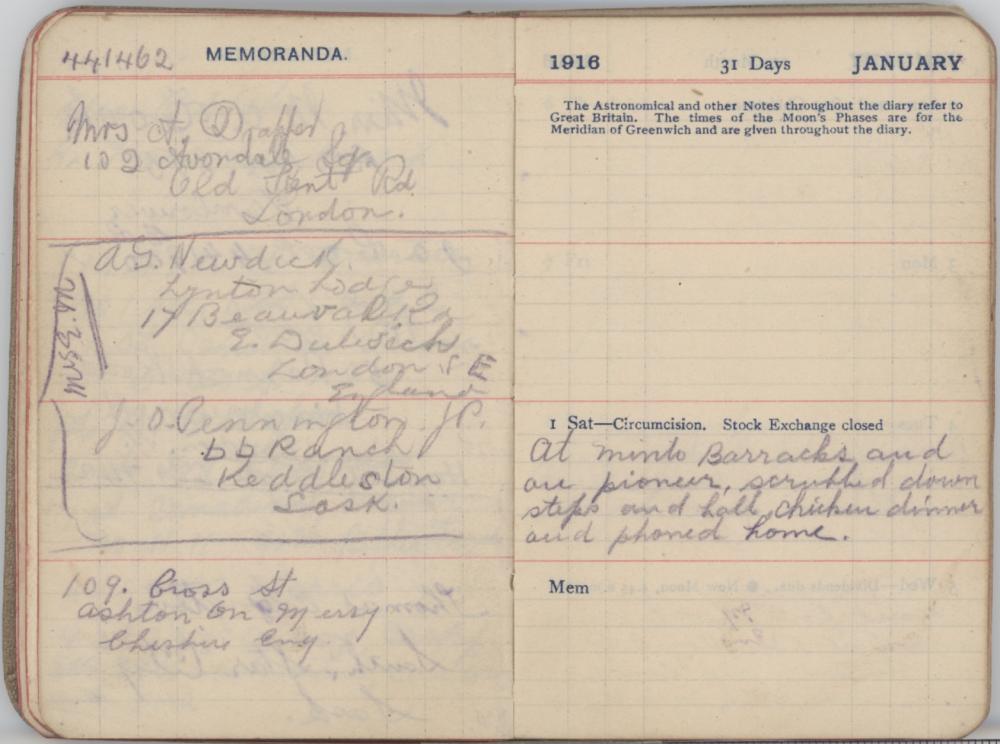 441462
MEMORANDA.
Mrs A. Draffer
102 Avondale Sq.
Old Kent Rd
London.
A.G. Newdick.
Lynton Lodge
17 Beauval Rd
E. Dulwich
London S E
England
Mrs E. M
J. O. Pennington. J P.
bb Ranch
Keddleston
Sask.
109. Cross St
Ashton On Mersy
Cheshire Eng
1916 31 Days JANUARY
The Astronomical and other Notes throughout the diary refer to
Great Britain. The times of the Moon's Phases are for the
Meridian of Greenwich and are given throughout the diary.
1 Sat—Circumcision. Stock Exchange closed
At Minto Barracks and
on pioneer, scrubbed down
steps and hall, chicken dinner
and phoned home.
Mem